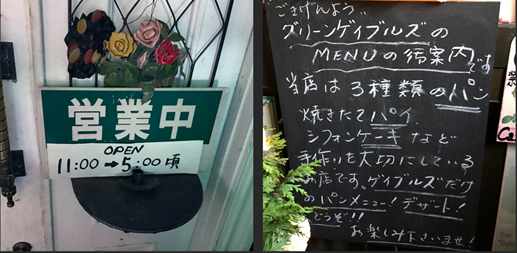 営業中
OPEN
11:00→5:00頃
ごきげんよう。
グリーンゲイブルズの
MENUの御案内です
当店は3種類のパン
焼きたてパイ
シフォンケーキなど
手作りを大切にしている
お店です。ゲイブルズだけ
のパンメニュー!デザート!
どうぞ!!
お楽しみ下さいませ!